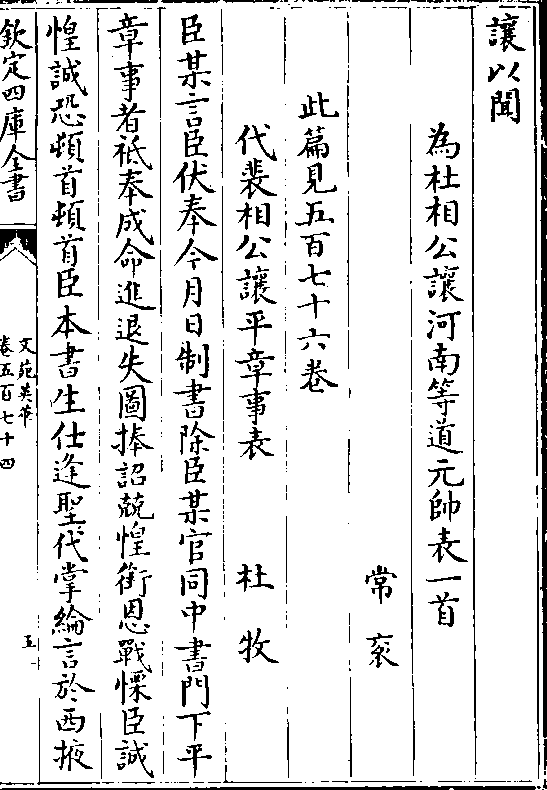 讓以聞
為杜相公讓河南等道元帥表一首
常衮
此篇見五百七十六卷
代裴相公讓平章事表 杜牧
臣某言臣伏奉今月日制書除臣某官同中書門下平
章事者祗奉成命進退失圖捧詔兢惶銜恩戰慄臣誠
惶誠恐頓首頓首臣本書生仕逢聖代掌綸言於西掖
欽定四庫全書
文苑英華
卷五百七十四
五